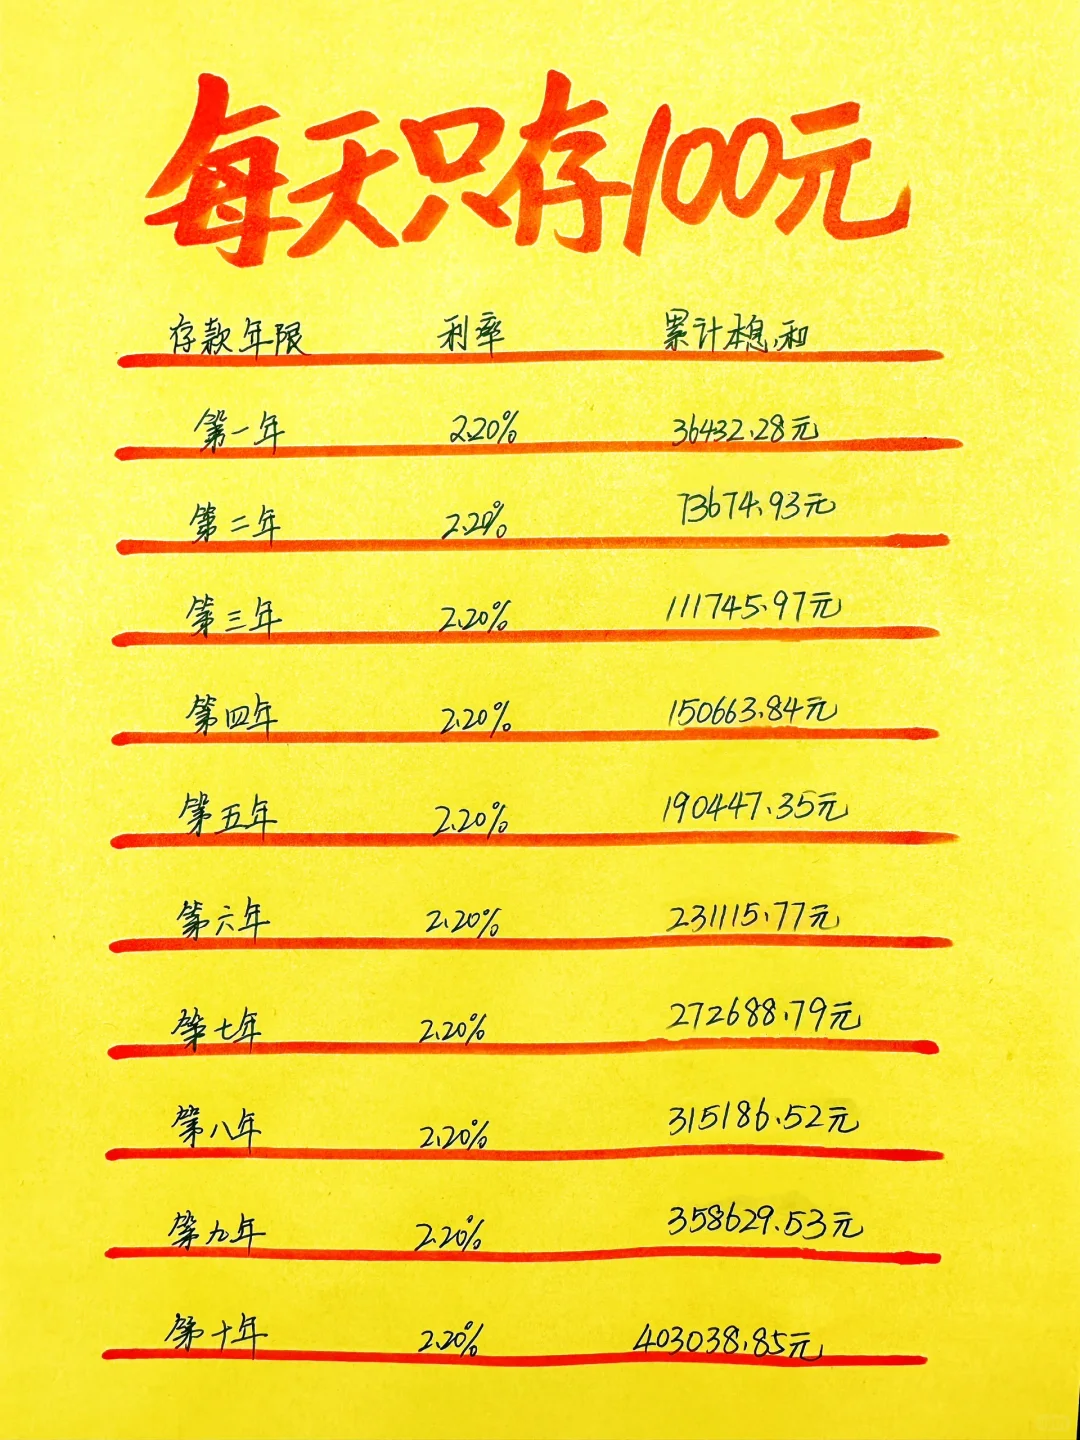 每天只存100元
存款年限 利率 累计本息和
第一年 2.20% 36432.28元
第二年 2.20% 73674.93元
第三年 2.20% 111745.97元
第四年 2.20% 150663.84元
第五年 2.20% 190447.35元
第六年 2.20% 231115.77元
第七年 2.20% 272688.79元
第八年 2.20% 315186.52元
第九年 2.20% 358629.53元
第十年 2.20% 403038.85元